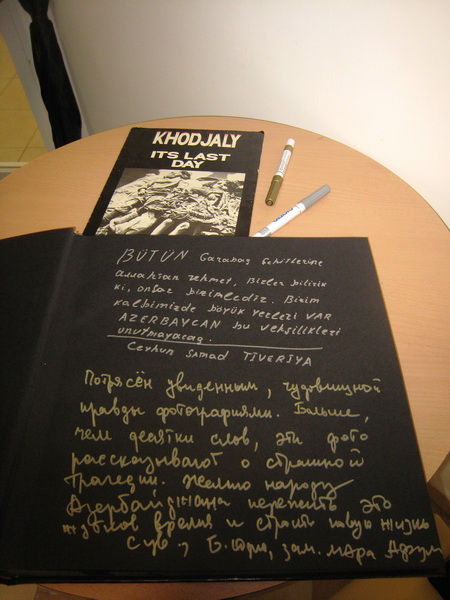 KHODJALY
ITS LAST
DAY
BÜTÜN Garabag şehitlerine
allahtan rehmet, Bizler bilirik
ki, onlar bizimledir. Bizim
kalbimizde böyük yerleri VAR
AZERBAYCAN bu vehşilikleri
unutmayacag.
Ceyhun Samad TİVERİYA
Потрясён увиденным, чудовищной
правды фотографиями. Больше,
чем десятки слов, эти фото
рассказывают о страшной
трагедии. Желаю народу
Азербайджана пережить это
время и строить новую жизнь
С ув., зам. мэра